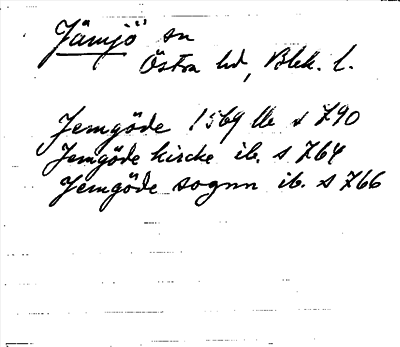 Jämjö sn
Östra hd, Blek. l.
Jemgöde 1569 lb s 790
Jemgöde kircke ib. s 764
Jemgöde sognn ib. s 766